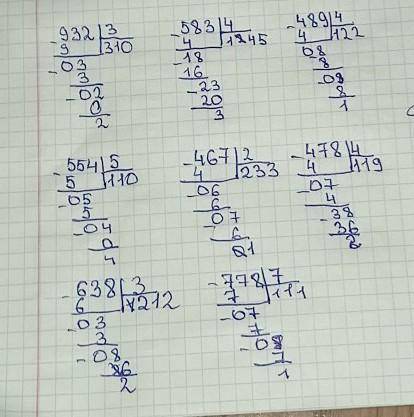 -932|3
9 |310
-03
3
-02
0
2
-583|4
4 |145
-18
16
-23
20
3
-489|4
4 |122
08
-8
-08
8
1
-554|5
5 |110
-05
5
-04
0
4
-467|2
4 |233
-06
6
-07
6
1
-478|4
4 |119
-07
4
-38
36
2
-638|3
6 |212
-03
3
-08
6
2
-778|7
7 |111
-07
7
-08
7
1